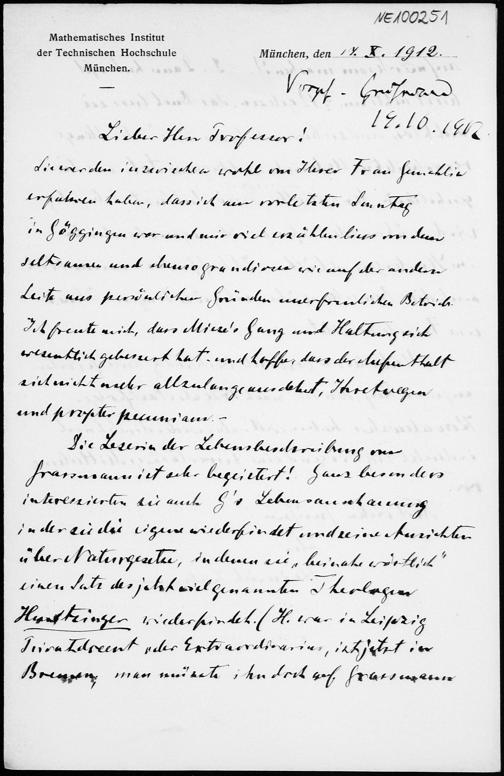 NE100251
Mathematisches Institut
der Technischen Hochschule
München.
München, den 14. X. 1912.
19.10.1912
Lieber Herr Professor!
Sie werden inzwischen wohl von Ihrer Frau Gemahlin
erfahren haben, dass ich am vorletzten Sonntag
in Göggingen war und mir viel erzählen liess von dem
seltsamen und ebenso grandiosen wie auf der anderen
Seite aus persönlichen Gründen unerfreulichen Betrieb.
Ich freute mich, dass Mieze's Gang und Haltung sich
wesentlich gebessert hat und hoffe, dass der Aufenthalt
sich nicht mehr allzulange ausdehnt, Ihretwegen
und propter pecuniam. –
Die Leserin der Lebensbeschreibung von
Grassmann ist sehr begeistert! Ganz besonders
interessierten sie auch G's Lebensanschauung
in der sie die eigene wiederfindet und seine Ansichten
über Naturgesetze, in denen sie „beinahe wörtlich"
einen Satz des jetzt viel genannten Theologen
wiederfindet. (H. war in Leipzig
Privatdocent oder Extraordinarius, ist jetzt in
Bremen, man müsste ihn doch auf Grassmann